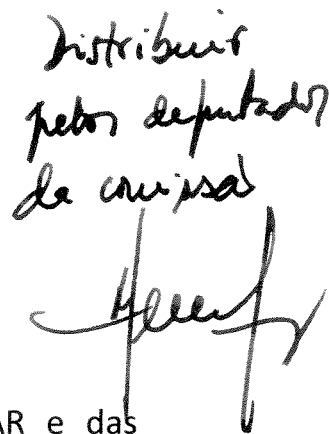 Distribuir
pelos deputados
da comissã
AR e das